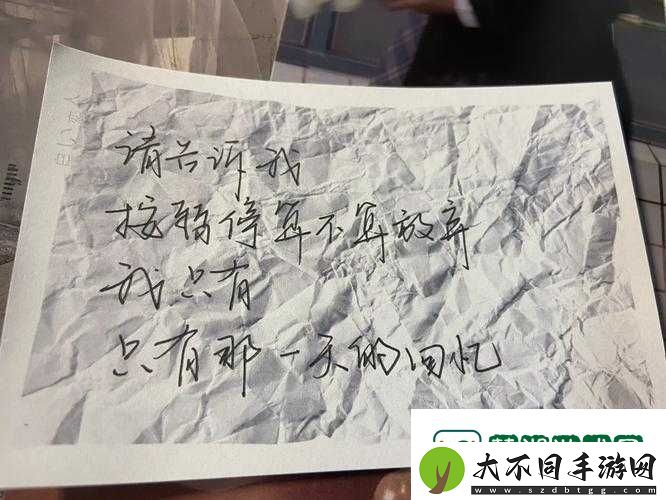 请告诉我
按暂停算不算放弃
我只有
只有那一天的回忆
大不同手游网
www.szdbtgg.com